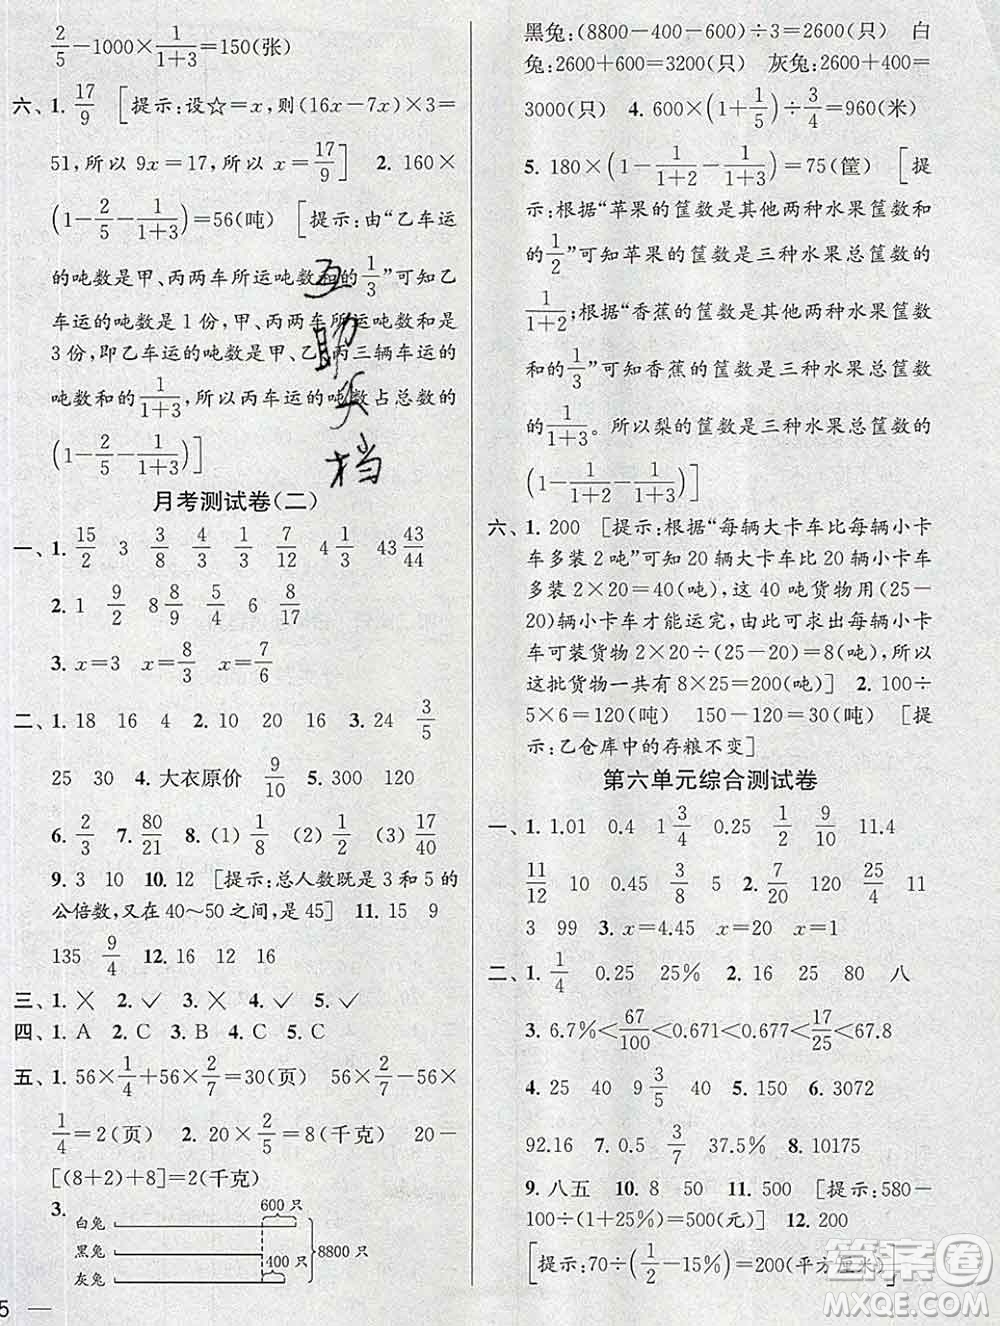 2/5－1000×1/(1+3)＝150(张)
六、1. 17/9 [提示:设☆＝x,则(16x－7x)×3＝
51,所以 9x＝17,所以 x＝17/9] 2. 160×
(1－2/5－1/(1+3))＝56(吨) [提示:由“乙车运
的吨数是甲、丙两车所运吨数和的1/3”可知乙
车运的吨数是 1 份,甲、丙两车的吨数和是
3 份,即乙车运的吨数是甲、乙、丙三辆车运的
吨数和的1/(1+3),所以丙车运的吨数占总数的
(1－2/5－1/(1+3))]
互助文档
月考测试卷(二)
一、1. 15/2 3 3/8 4/3 1/8 7/12 4 1/3 43 43/44
2. 1 9/2 8 8/9 5/4 6 8/17
3. x＝3 x＝8/3 x＝7/6
二、1. 18 16 4 2. 10 20 16 3. 24 3/5
25 30 4. 大衣原价 9/10 5. 300 120
6. 2/3 7. 80/21 8. (1) 1/8 (2) 1/2 (3) 17/40
9. 3 10 10. 12 [提示:总人数既是 3 和 5 的
公倍数,又在 40～50 之间,是 45] 11. 15 9
135 9/4 12. 16 12 16
三、1. × 2. ✓ 3. × 4. ✓ 5. ✓
四、1. A 2. C 3. B 4. C 5. C
五、1. 56×1/4＋56×2/7＝30(页) 56×2/7－56×
1/4＝2(页) 2. 20×2/5＝8(千克) 20－
[(8＋2)＋8]＝2(千克)
3. 600 只
白兔
黑兔
400 只
8800 只
灰兔
5 —
黑兔:(8800－400－600)÷3＝2600(只) 白
兔:2600＋600＝3200(只) 灰兔:2600＋400＝
3000(只) 4. 600×(1＋1/5)÷3/4＝960(米)
5. 180×(1－1/(1+2)－1/(1+3))＝75(筐) [提
示:根据“苹果的筐数是其他两种水果筐数和
的1/2”可知苹果的筐数是三种水果总筐数的
1/(1+2);根据“香蕉的筐数是其他两种水果筐数
和的1/3”可知香蕉的筐数是三种水果总筐数的
1/(1+3)。所以梨的筐数是三种水果总筐数的
(1－1/(1+2)－1/(1+3))]
六、1. 200 [提示:根据“每辆大卡车比每辆小卡
车多装 2 吨”可知 20 辆大卡车比 20 辆小卡车
多装 2×20＝40(吨),这 40 吨货物用(25－
20)辆小卡车才能运完。由此可求出每辆小卡
车可装货物 2×20÷(25－20)＝8(吨),所以
这批货物一共有 8×25＝200(吨)] 2. 100÷
5×6＝120(吨) 150－120＝30(吨) [提
示:乙仓库中的存粮不变]
第六单元综合测试卷
一、1. 1.01 0.4 1 3/4 0.25 1/2 9/10 11.4
11/12 10 20 45 2 2/3 2. 7/20 120 25/4
3 99 3. x＝4.45 x＝20 x＝1
二、1. 1/4 0.25 25% 2. 16 25 80 八
3. 6.7%＜67/100＜0.671＜0.677＜17/25＜67.8
4. 25 40 9 3/5 5. 150 6. 3072
92.16 7. 0.5 3/7 37.5% 8. 10175
9. 八五 10. 8 50 11. 500 [提示:580－
100÷(1＋25%)＝500(元)] 12. 200
[提示:70÷(1/2－15%)＝200(平方厘米)]
答案圈
MXQE.COM